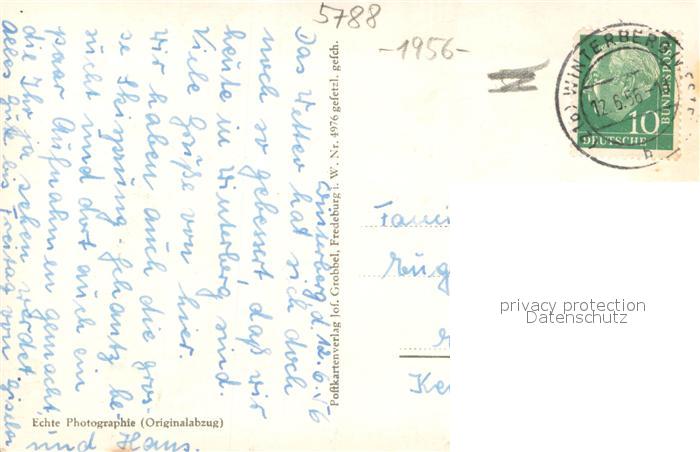 5788
-1956-
Winterberg, d. 12.6.56
Das Wetter hat sich doch
noch so gebessert, daß wir
heute in Winterberg sind.
Viele Grüße von hier.
Wir haben auch die gros-
se Skisprung-Schantz be-
sucht und dort auch ein
paar Aufnahmen gemacht,
die Ihr ja sehen werdet.
Alles Gute bis Freitag von Gisela
und Hans.
Echte Photographie (Originalabzug)
Postkartenverlag Jos. Grobbel, Fredeburg i. W. · Nr. 4976 gesetzl. gesch.
WINTERBERG
12.6.56
b
10
DEUTSCHE
BUNDESPOST
Fami
Eug
Ke
privacy protection
Datenschutz